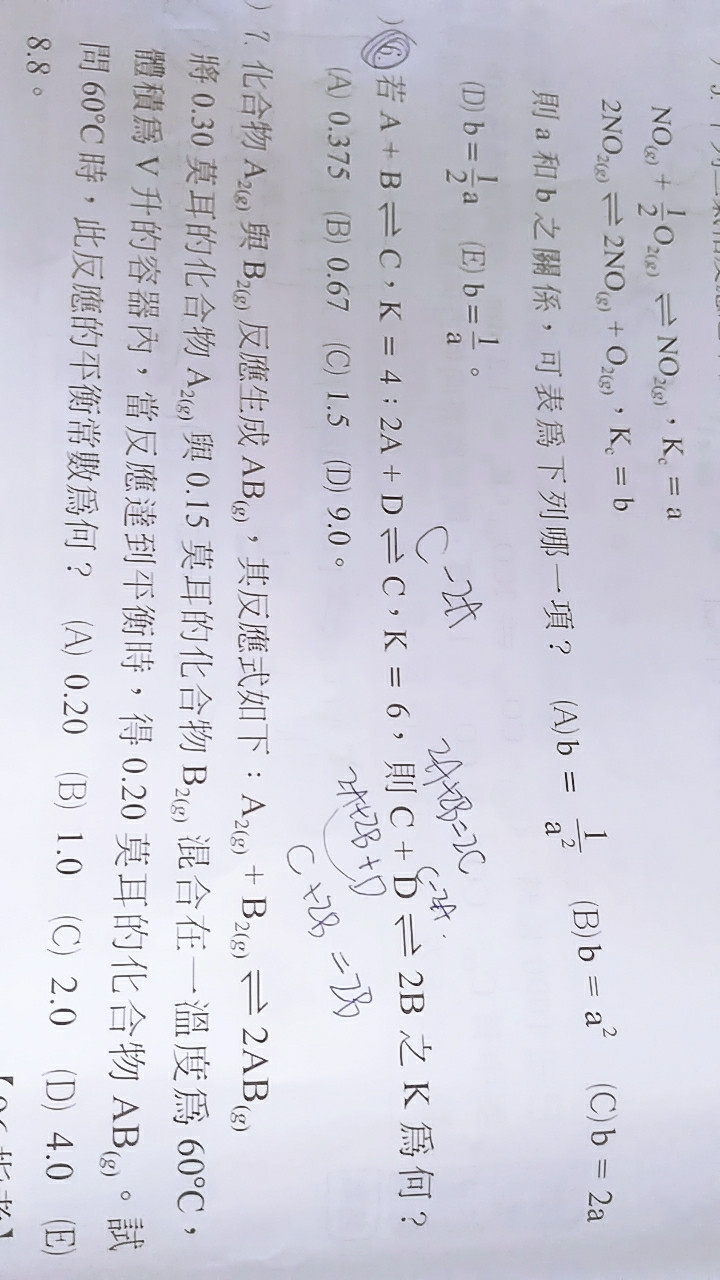 NO(g) + 1/2 O2(g) ⇌ NO2(g),Kc = a
2NO2(g) ⇌ 2NO(g) + O2(g),Kc = b
則 a 和 b 之關係,可表為下列哪一項? (A) b = 1/a² (B) b = a² (C) b = 2a
(D) b = 1/2 a (E) b = 1/a 。
C-2A
2A+2B=2C
C-2A
) 6. 若 A + B ⇌ C,K = 4;2A + D ⇌ C,K = 6,則 C + D ⇌ 2B 之 K 為何?
(A) 0.375 (B) 0.67 (C) 1.5 (D) 9.0。
2A+2B+D
C+2B=2B
) 7. 化合物 A2(g) 與 B2(g) 反應生成 AB(g),其反應式如下:A2(g) + B2(g) ⇌ 2AB(g)
將 0.30 莫耳的化合物 A2(g) 與 0.15 莫耳的化合物 B2(g) 混合在一溫度為 60°C,
體積為 V 升的容器內,當反應達到平衡時,得 0.20 莫耳的化合物 AB(g)。試
問 60°C 時,此反應的平衡常數為何? (A) 0.20 (B) 1.0 (C) 2.0 (D) 4.0 (E)
8.8。